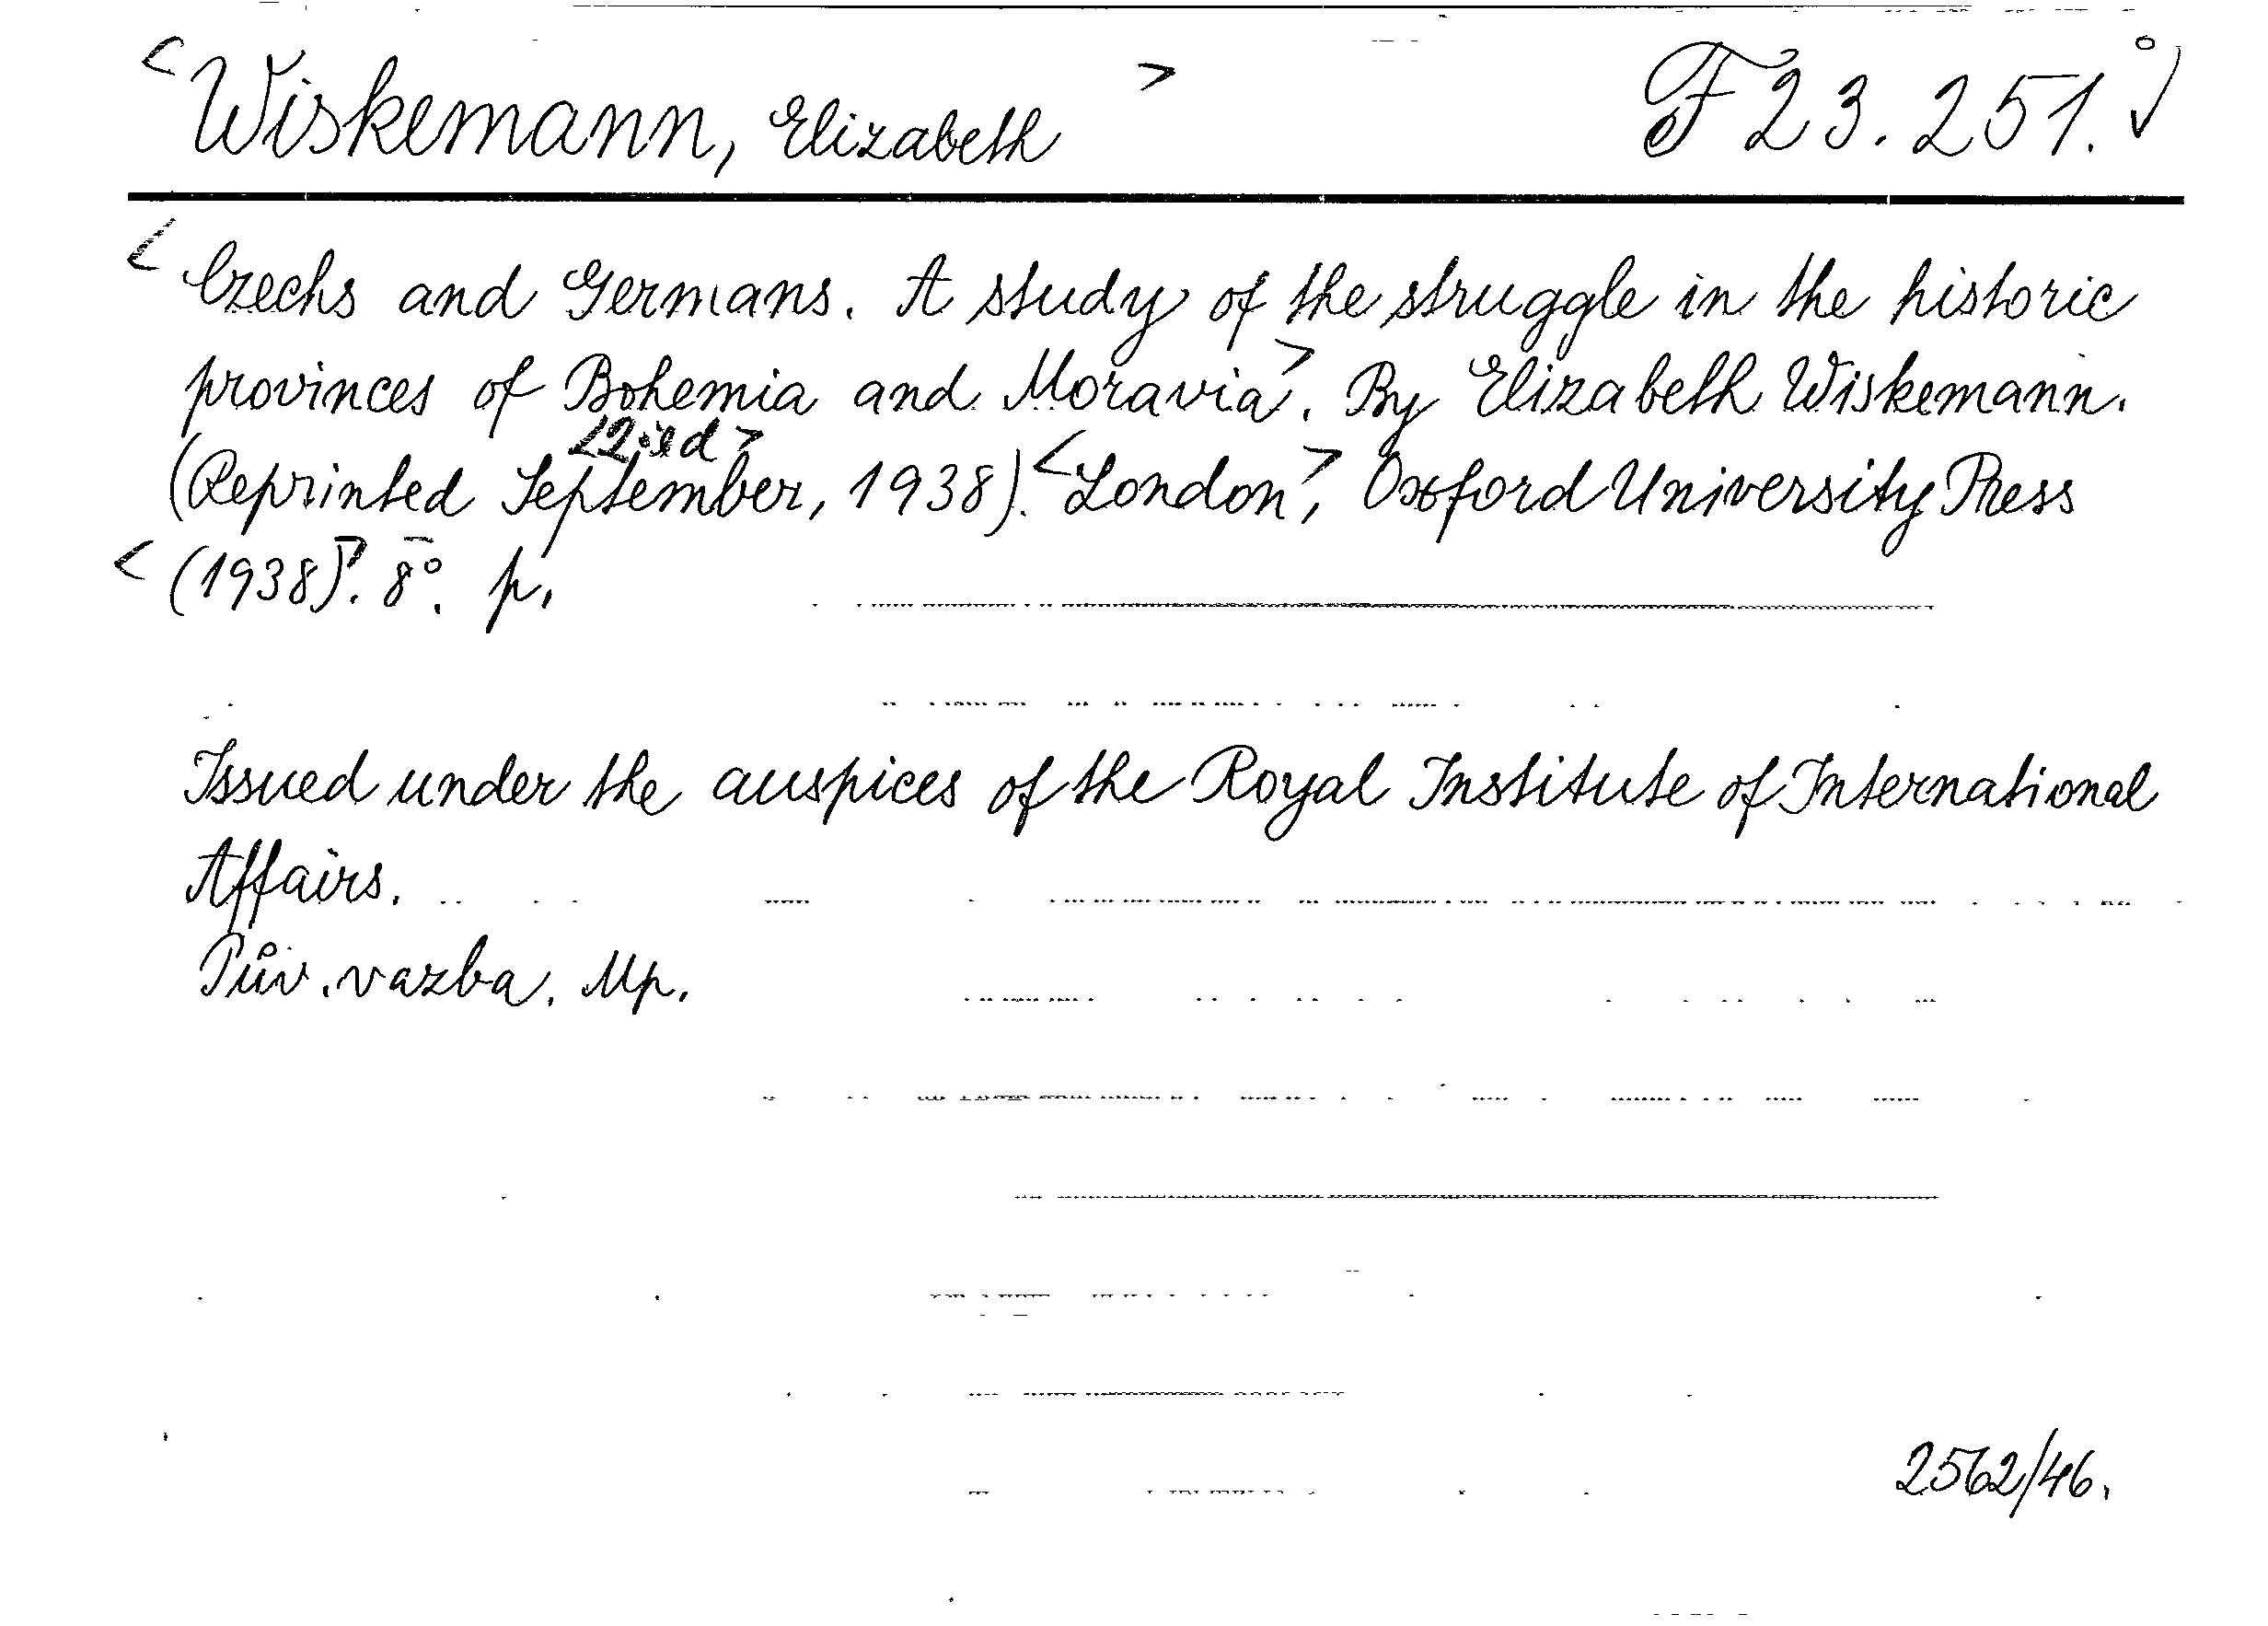 <Wiskemann, Elizabeth> F 23.251.
<Czechs and Germans. A study of the struggle in the historic
provinces of Bohemia and Moravia>. By Elizabeth Wiskemann.
<2.ed>
(Reprinted September, 1938). <London>, Oxford University Press
<(1938)>. 8°. p.
Issued under the auspices of the Royal Institute of International
Affairs.
Pův. vazba. Mp.
2562/46.